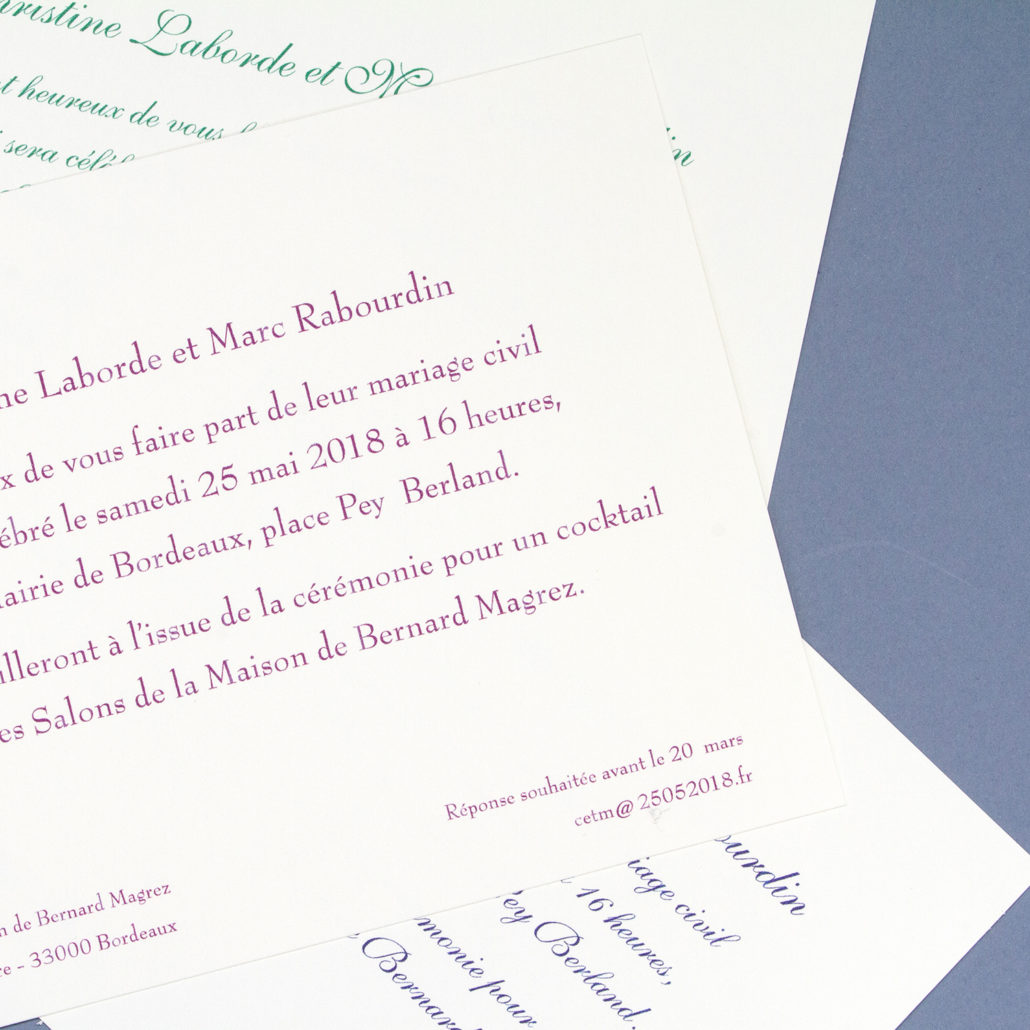 Laborde et
heureux de vous
sera
Laborde et Marc Rabourdin
de vous faire part de leur mariage civil
le samedi 25 mai 2018 à 16 heures,
de Bordeaux, place Pey Berland.
à l'issue de la cérémonie pour un cocktail
Salons de la Maison de Bernard Magrez.
Réponse souhaitée avant le 20 mars
cetm@ 25052018.fr
de Bernard Magrez
- 33000 Bordeaux
civil
16 heures,
Berland.
pour